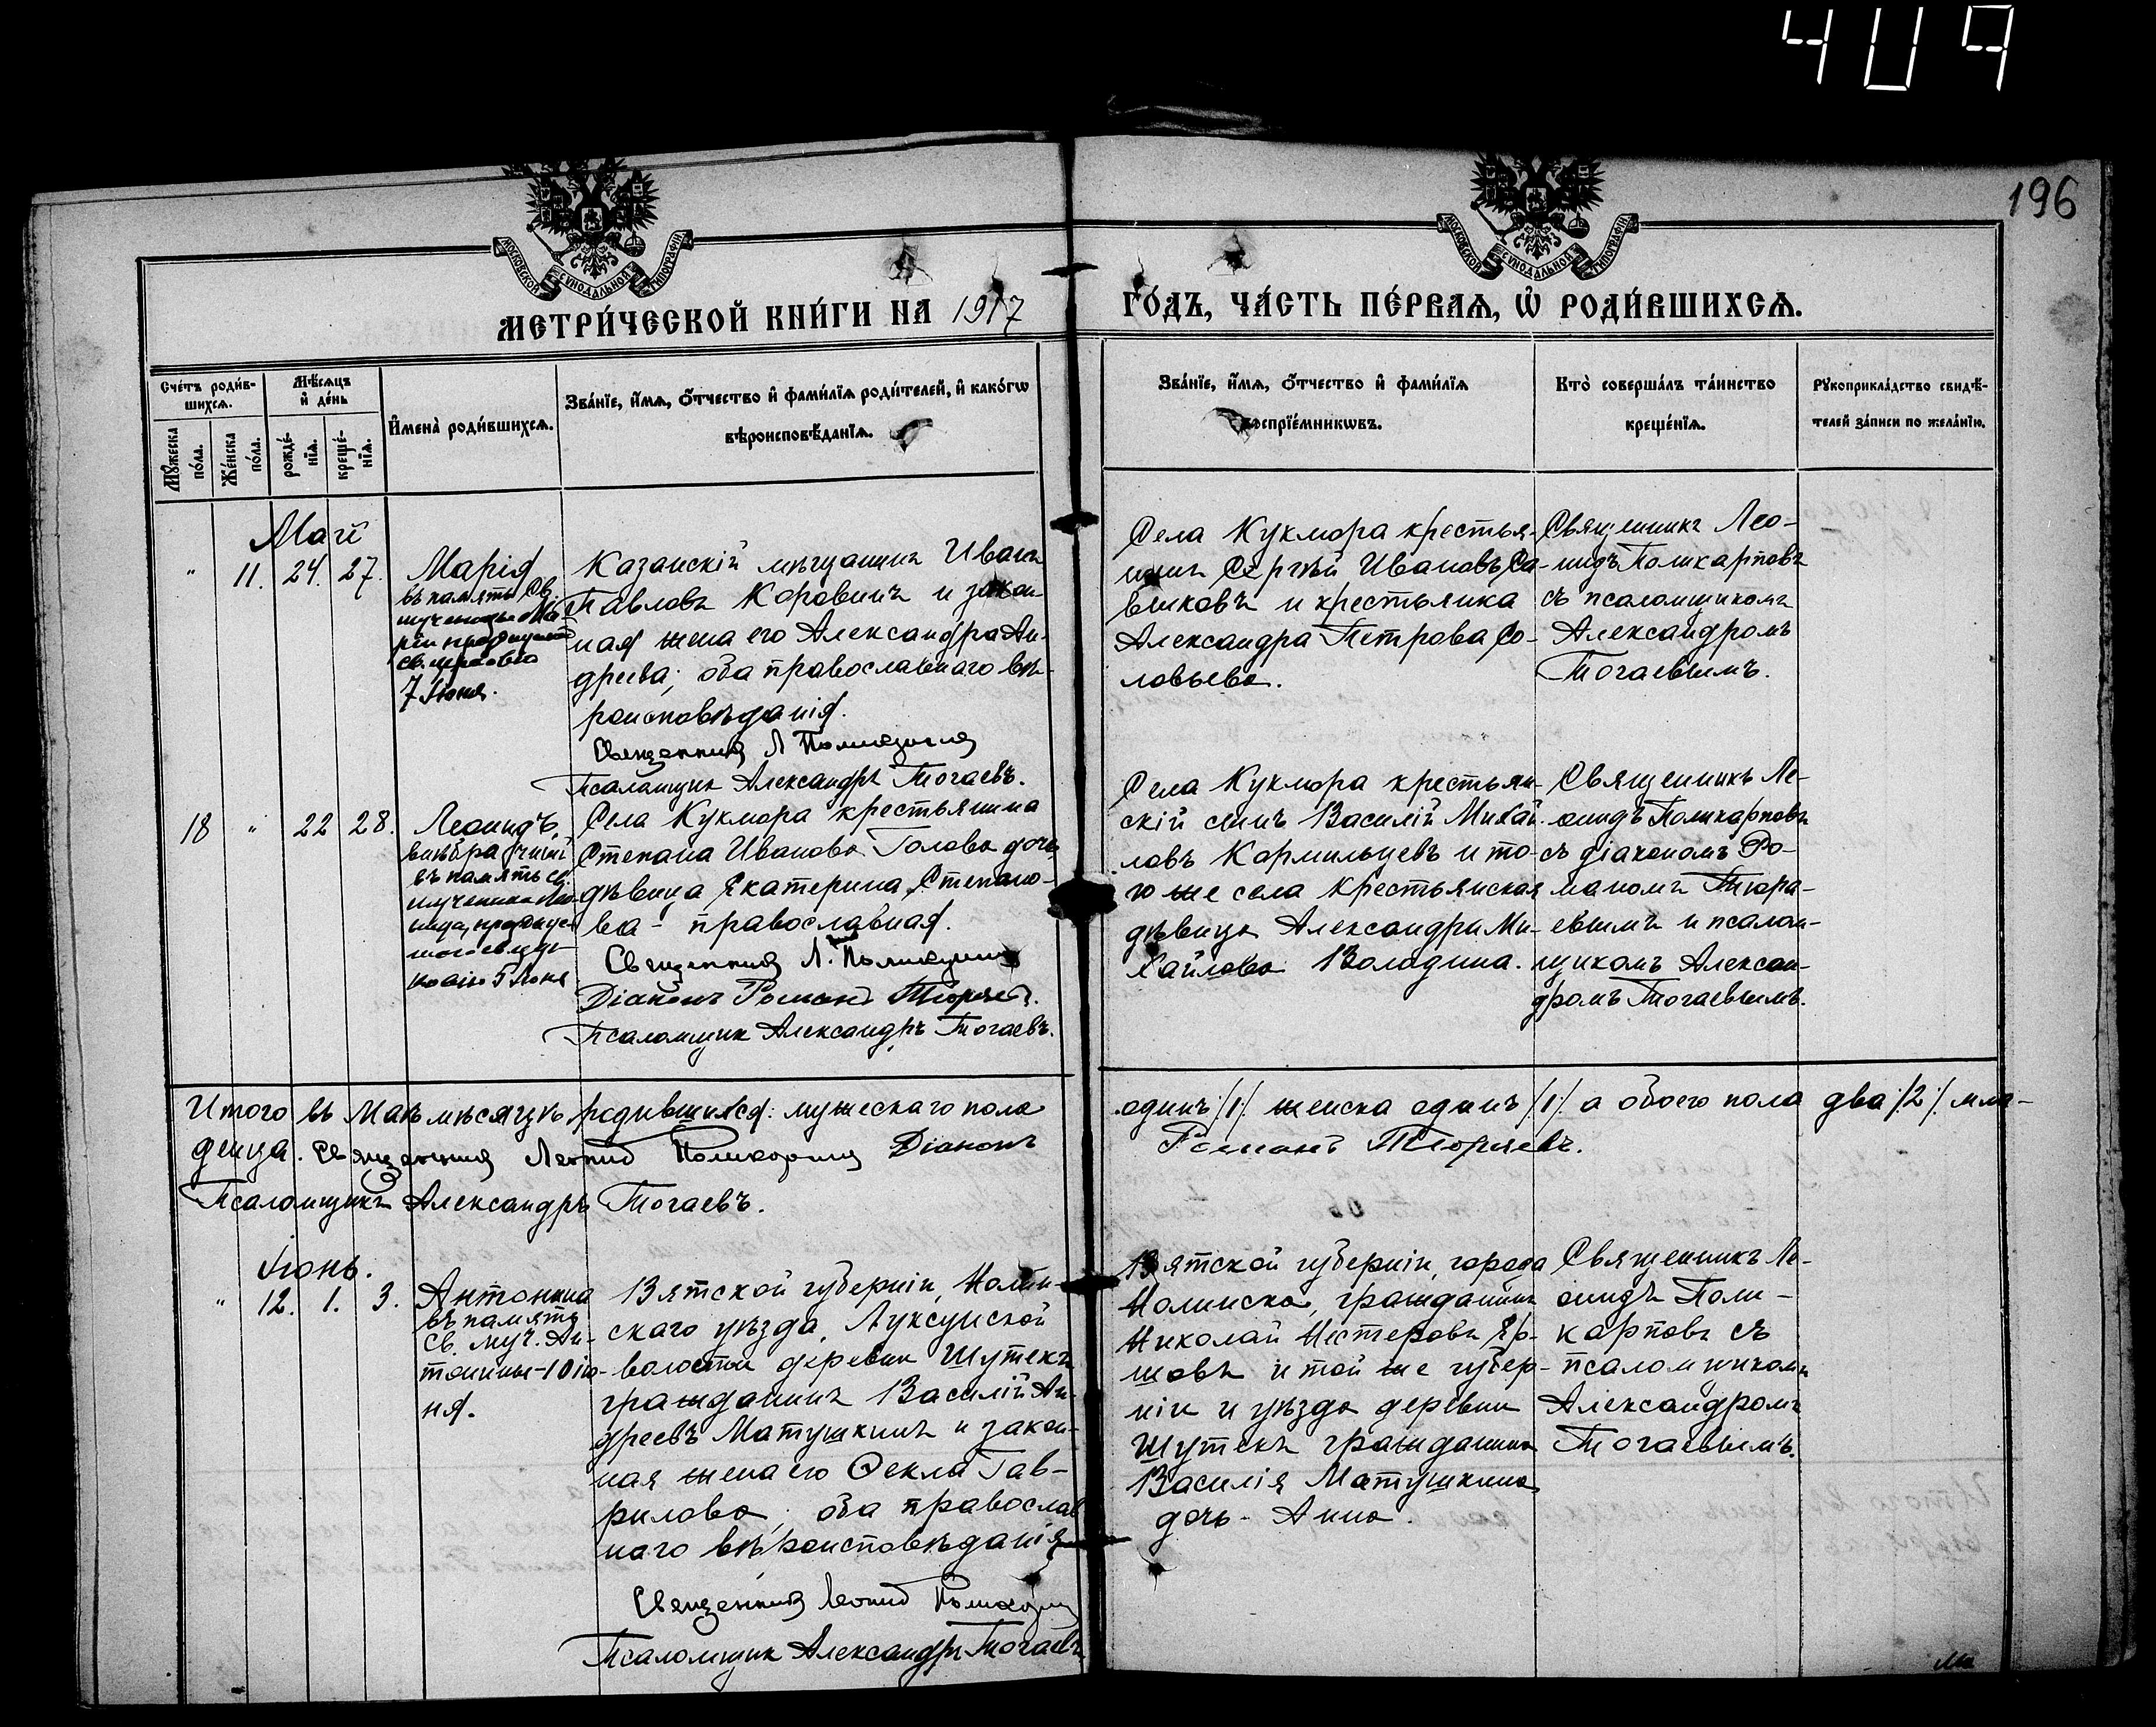 409
196
МОСКОВСКОЙ СѴНОДАЛЬНОЙ ТИПОГРАФІИ
МОСКОВСКОЙ СѴНОДАЛЬНОЙ ТИПОГРАФІИ
МЕТРИ́ЧЕСКОЙ КНИ́ГИ НА 1917
ГО́ДЪ, ЧА́СТЬ ПЕ́РВАѦ, Ѡ҆ РОДИ́ВШИХСѦ.
Сче́тъ роди́в-
шихсѧ.
Мꙋ́жеска
по́ла.
Же́нска
по́ла.
Мѣ́сѧцъ
и҆ де́нь
рожде́-
нїѧ.
креще́-
нїѧ.
И҆мена̀ роди́вшихсѧ.
Зва́нїе, и҆́мѧ, ѻ҆́тчество и҆ фами́лїѧ роди́телей, и҆ како́гѡ
вѣроисповѣ́данїѧ.
Зва́нїе, и҆́мѧ, ѻ҆́тчество и҆ фами́лїѧ
воспрїе́мникѡвъ.
Кто̀ соверша́лъ та́инство
креще́нїѧ.
Рꙋкоприкла́дство свидѣ́-
телей за́писи по жела́нїю.
Май
" 11. 24. 27.
Марія
въ память Св.
мученицы Ма-
ріи празднуемой
св. церковію
7 Іюня.
Казанскій мѣщанинъ Иванъ
Павловъ Коровинъ и закон-
ная жена его Александра Ан-
дреева; оба православнаго вѣ-
роисповѣданія.
Священникъ Л Поликарповъ
Псаломщик Александръ Тогаевъ.
Села Кукмора крестья-
нинъ Сергѣй Ивановъ Са-
виковъ и крестьянка
Александра Петрова Со-
ловьева.
Священникъ Лео-
нидъ Поликарповъ
съ псаломщикомъ
Александромъ
Тогаевымъ.
18 " 22 28.
Леонидъ,
внѣбрачный
въ память св.
мученика Лео-
нида, празднуе-
маго св. цер-
ковію 5 Іюня
Села Кукмора крестьянина
Степана Иванова Голова дочь
дѣвица Екатерина Степано-
ва - православная.
Священникъ Л. Поликарповъ
Діаконъ Романъ Тюряевъ.
Псаломщик Александръ Тогаевъ.
Села Кукмора крестьян-
скій сынъ Василій Михай-
ловъ Кормильцевъ и то-
го же села крестьянская
дѣвица Александра Ми-
хайлова Володина.
Священникъ Ле-
онидъ Поликарповъ
съ діакономъ Ро-
маномъ Тюря-
евымъ и псалом-
щикомъ Алексан-
дромъ Тогаевымъ.
Итого въ Маѣ мѣсяцѣ родившихся: мужескаго пола
одинъ /1/ женска одинъ /1/ а обоего пола два /2/ мла-
денца. Священникъ Леонид Поликарповъ Діаконъ
Романъ Тюряевъ.
Псаломщикъ Александръ Тогаевъ.
Іюнь.
" 12. 1. 3.
Антонина
въ память
св. муч. Ан-
тонины-10 ію-
ня.
Вятской губерніи, Нолин-
скаго уѣзда, Луксунской
волости деревни Шутекъ
гражданинъ Василій Ан-
дреевъ Матушкинъ и закон-
ная жена его Ѳекла Гав-
рилова; оба православ-
наго вѣроисповѣданія
Священникъ Леонид Поликарповъ
Псаломщик Александръ Тогаевъ
Вятской губерніи, города
Нолинска, гражданинъ
Николай Нестеровъ Ер-
шовъ и той же губер-
ніи и уѣзда деревни
Шутекъ гражданина
Василія Матушкина
дочь - Анна.
Священникъ Ле-
онидъ Поли-
карповъ съ
псаломщикомъ
Александромъ
Тогаевымъ.